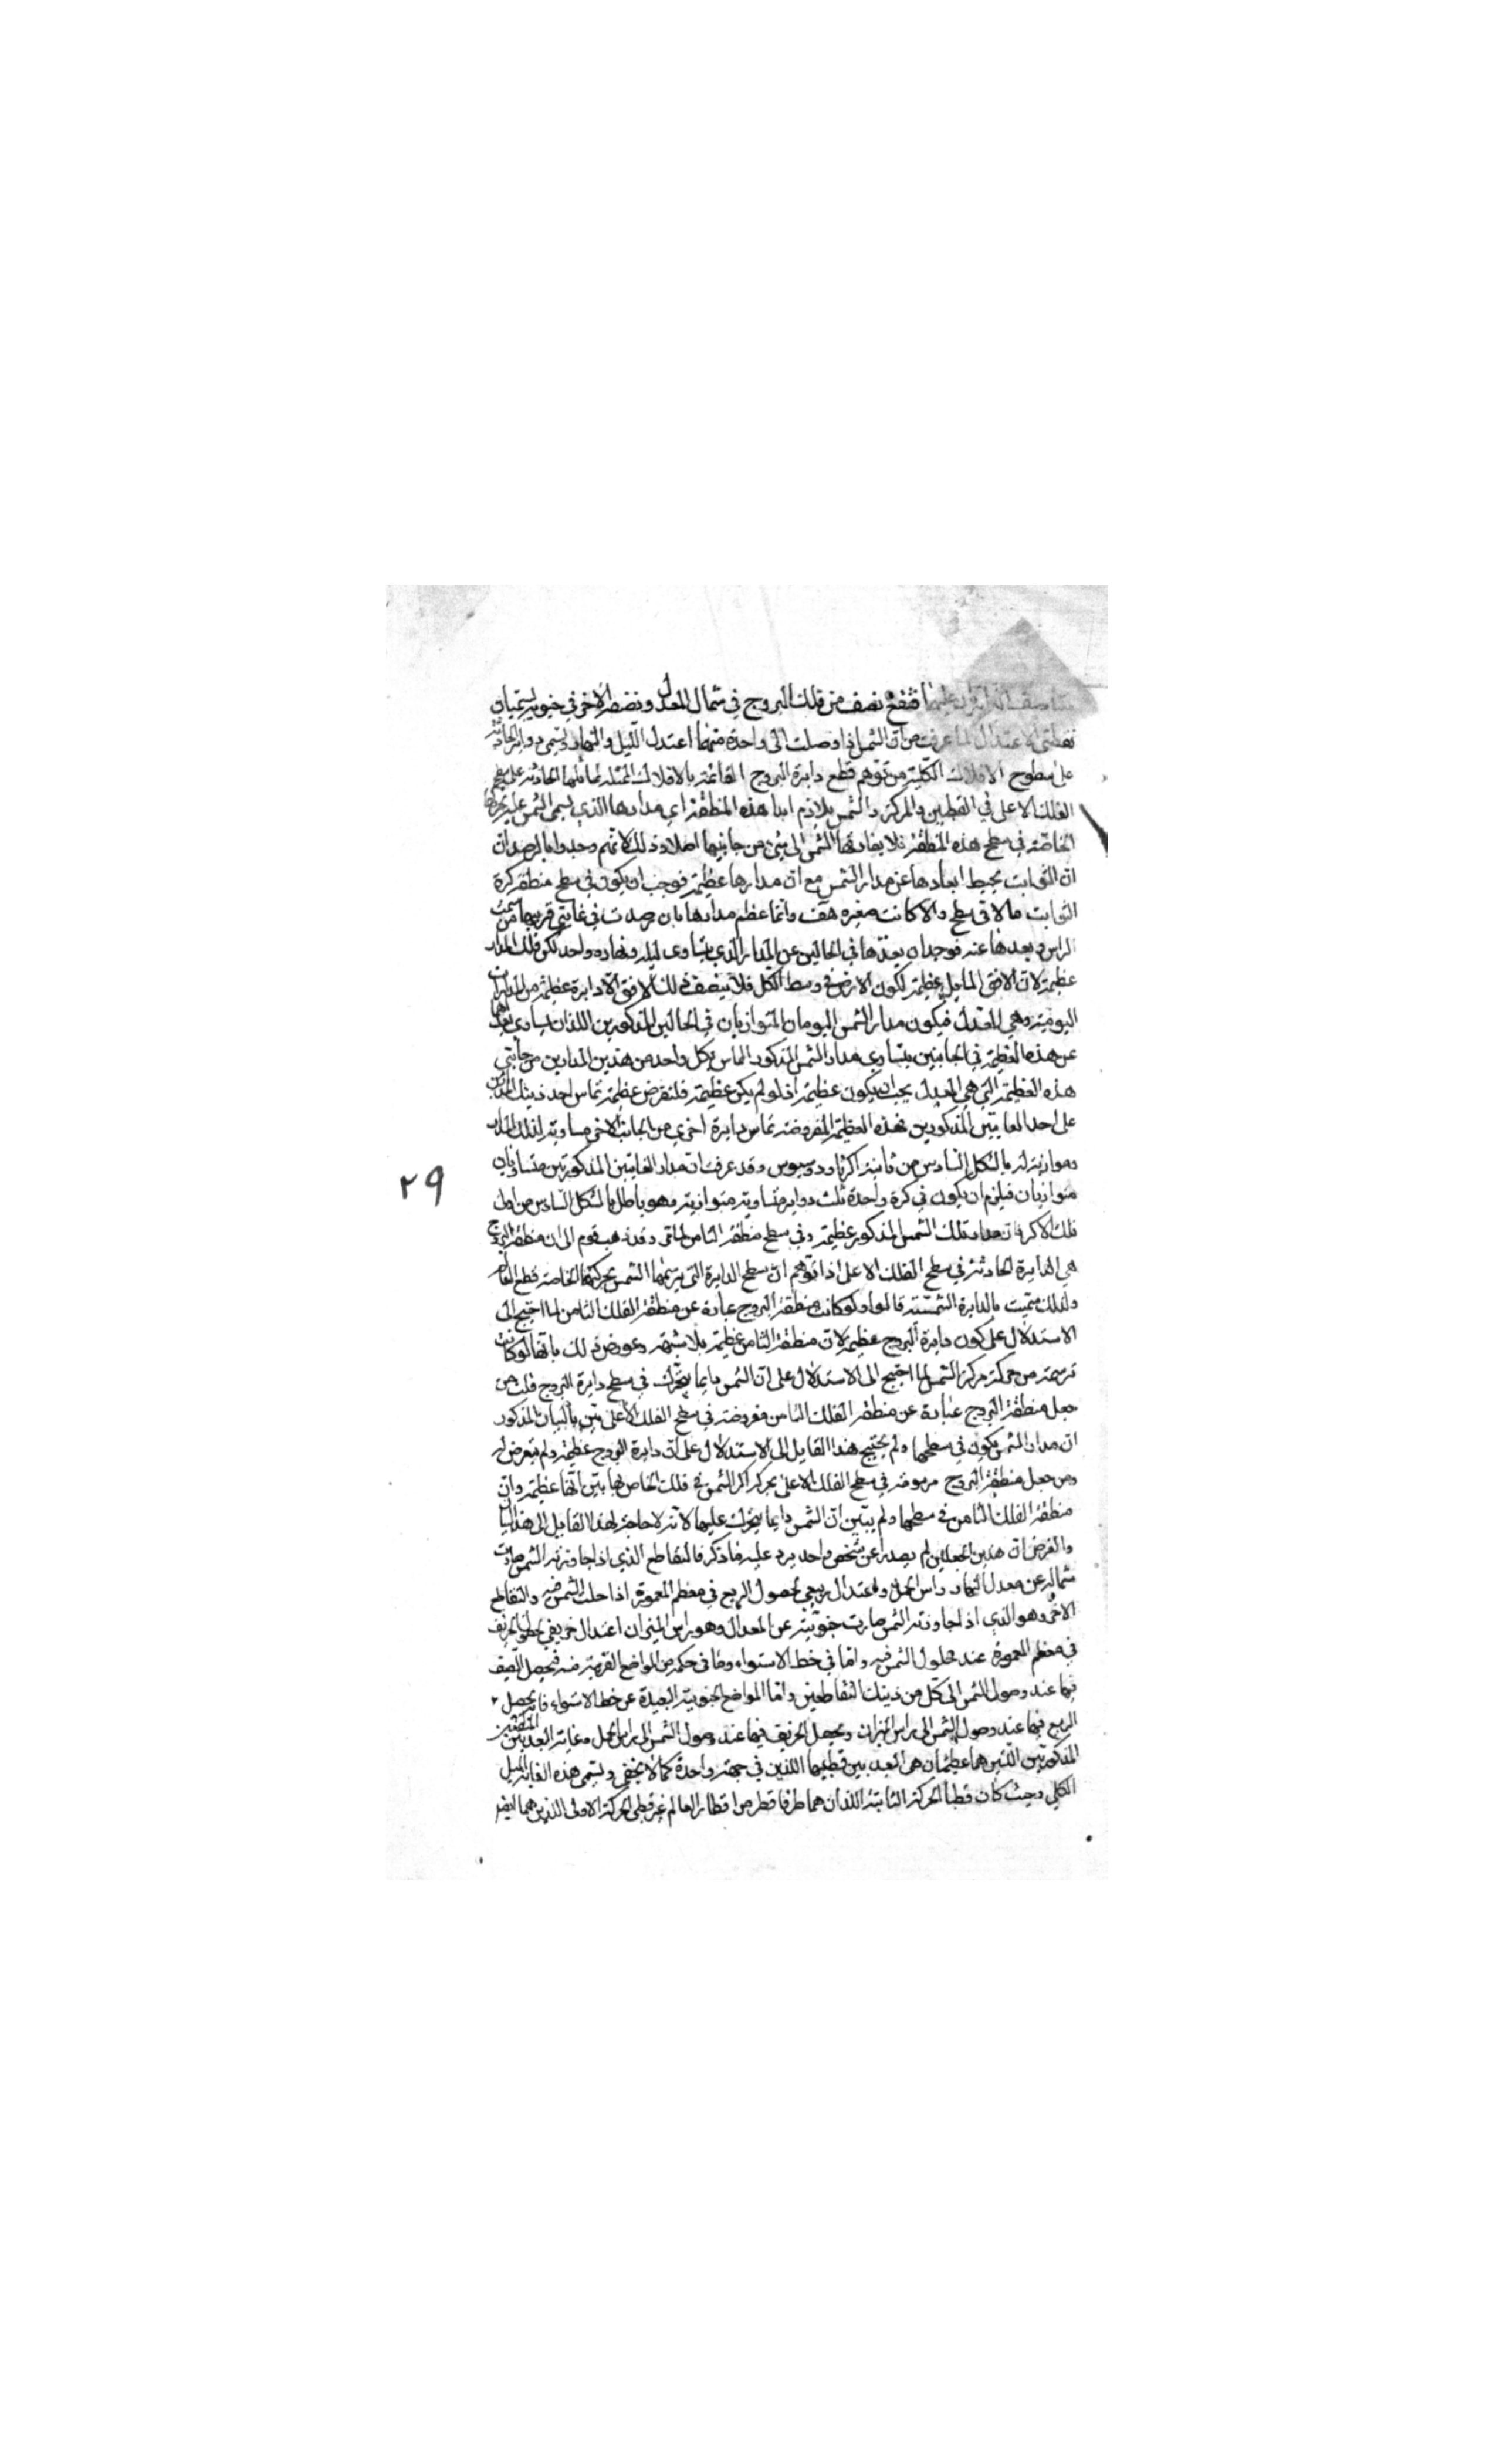 فيقع نصف من فلك البروج في شمال المعدل ونصفه الاخر في جنوبه يسميان
نقطتي الاعتدال لما عرفت من ان الشمس اذا وصلت الى واحدة منهما اعتدل الليل والنهار ويسمى دواير الحادثة
على سطوح الافلاك الكلية من توهم قطع دايرة البروج القائمة بالافلاك الممثلة الحادثة على سطح
الفلك الاعلى في القطبين والمركز والشمس يلازم ابدا هذه المنطقة اي مدارها الذي يسمى الشمس عليه بحركتها
الخاصة في سطح هذه المنطقة فلا يفارقها الشمس الى شيء من جانبيها اصلا وذلك لانهم وجدوا بالرصد ان
ان الثوابت يحيط ابعادها عن مدار الشمس مع ان مدارها عظيمة فوجب ان يكون في سطح منطقة كرة
الثوابت والا كانت صغيرة هف وانما عظم مدارها بان رصدت في غايتي قربها من سمت
الراس وبعدها عنه فوجدان بعدها في الحالين عن المدار الذي يتساوى ليله ونهاره واحد لكن ذلك المدار
عظيمة لان الافق المايل عظيمة لكون الارض في وسط الكل فلا ينصف ذلك الافق الا دايرة عظيمة من المدارات
اليومية وهي المعدل فيكون مدار الشمس اليوميان المتوازيان في الحالين المذكورين اللذان يساوى بعدهما
عن هذه العظيمة في الجانبين يتساوى مدار الشمس المذكور المماس بكل واحد من هذين المدارين من جانبي
هذه العظيمة التي هي المعدل يجب ان يكون عظيمة اذ لو لم يكن عظيمة فلنفرض عظيمة تماس احد ذينك المدارين
على احد الغايتين المذكورين فهذه العظيمة المفروضة تماس دايرة اخرى من الجانب الاخر مساوية لذلك المدار
وموازية له بالشكل السادس من ثانية اكر ثاودوسيوس وقد عرفت ان مدار الغايتين المذكورتين متساويان
متوازيان فيلزم ان يكون في كرة واحدة ثلث دواير متساوية متوازية وهو باطل بالشكل السادس من اول
تلك الاكر فان مدار تلك الشمس المذكور عظيمة وفي سطح منطقة الثامن لما مر وقد ذهب قوم الى ان منطقة البروج
هي الدايرة الحادثة في سطح الفلك الاعلى اذا توهم ان سطح الدايرة التي يرسمها الشمس بحركتها الخاصة قطع العالم
ولذلك سميت بالدايرة الشمسية قالوا ولو كانت منطقة البروج عبارة عن منطقة الفلك الثامن لما احتيج الى
الاستدلال على كون دايرة البروج عظيمة لان منطقة الثامن عظيمة بلا شبهة وعورض ذلك بانها لو كانت
ترسمة من حركة مركز الشمس لما احتيج الى الاستدلال على ان الشمس دايما يتحرك في سطح دايرة البروج قلت من
جعل منطقة البروج عبارة عن منطقة الفلك الثامن مفروضة في سطح الفلك الاعلى بين بالبيان المذكور
ان مدار الشمس يكون في سطحها ولم يحتج هذا القايل الى الاستدلال على ان دايرة البروج عظيمة ولم يتعرض له
ومن جعل منطقة البروج مرسومة في سطح الفلك الاعلى بحركة مركز الشمس في فلك الخاص بها بين انها عظيمة وان
منطقة الفلك الثامن في سطحها ولم يبين ان الشمس دايما يتحرك عليها لانه لا حاجة لهذا القايل الى هذا البيان
والغرض ان هذين الجعلين لم يصدرا عن شخص واحد يرد عليه ما ذكر فالتقاطع الذي اذا جاوزته الشمس صارت
شمالية عن معدل النهار راس الحمل واعتدال ربيعي لحصول الربيع في معظم المعمورة اذا حلت الشمس فيه والتقاطع
الاخر وهو الذي اذا جاوزته الشمس صارت جنوبية عن المعدل وهو راس الميزان اعتدال خريفي لحلول الخريف
في معظم المعمورة عند حلول الشمس فيه واما في خط الاستواء وما في حكمه من المواضع القريبة منه فيحصل الصيف
فيها عند وصول الشمس الى كل من ذينك التقاطعين واما المواضع الجنوبية البعيدة عن خط الاستواء فانه يحصل
الربيع فيها عند وصول الشمس الى راس الميزان ويحصل الخريف فيها عند وصول الشمس الى راس الحمل وغاية البعد بين المنطقتين
المذكورتين اللتين هما عظيمتان هي البعد بين قطبيهما اللذين في جهة واحدة كما لا يخفى ويسمى هذه الغاية الميل
الكلي وحيث كان قطبا الحركة الثانية اللذان هما طرفا قطر من اقطار العالم غير قطبي الحركة الاولى اللذين هما ايضا
٢٩